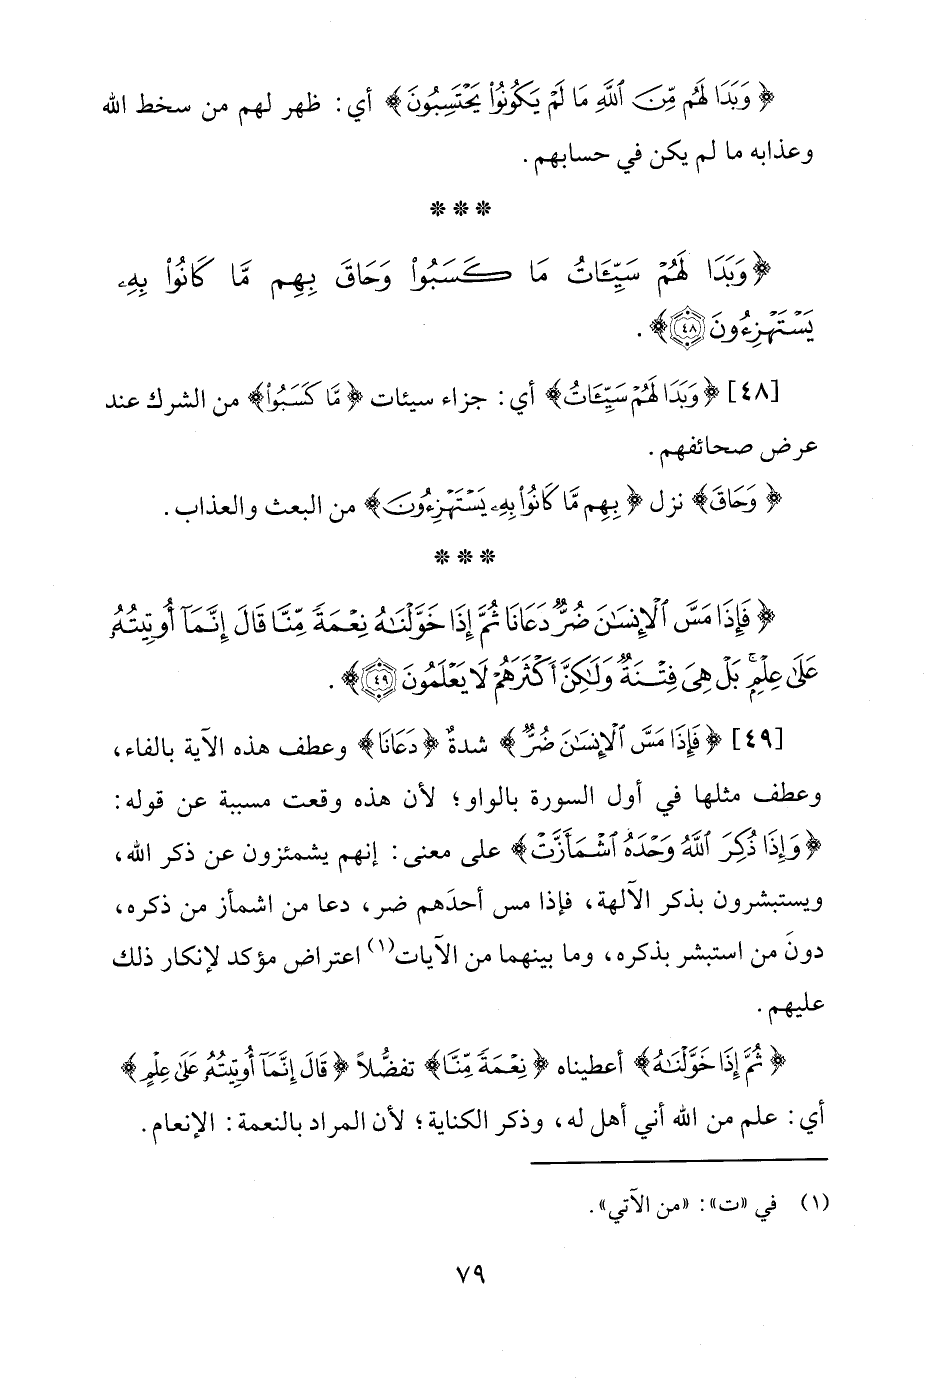 ﴿وَبَدَا لَهُم مِّنَ ٱللَّهِ مَا لَمْ يَكُونُوا۟ يَحْتَسِبُونَ﴾ أي: ظهر لهم من سخط الله
وعذابه ما لم يكن في حسابهم.
***
﴿وَبَدَا لَهُمْ سَيِّـَٔاتُ مَا كَسَبُوا۟ وَحَاقَ بِهِم مَّا كَانُوا۟ بِهِۦ
يَسْتَهْزِءُونَ ٤٨﴾.
[٤٨] ﴿وَبَدَا لَهُمْ سَيِّـَٔاتُ﴾ أي: جزاء سيئات ﴿مَّا كَسَبُوا۟﴾ من الشرك عند
عرض صحائفهم.
﴿وَحَاقَ﴾ نزل ﴿بِهِم مَّا كَانُوا۟ بِهِۦ يَسْتَهْزِءُونَ﴾ من البعث والعذاب.
***
﴿فَإِذَا مَسَّ ٱلْإِنسَٰنَ ضُرٌّ دَعَانَا ثُمَّ إِذَا خَوَّلْنَٰهُ نِعْمَةً مِّنَّا قَالَ إِنَّمَآ أُوتِيتُهُۥ
عَلَىٰ عِلْمٍۭ ۚ بَلْ هِىَ فِتْنَةٌ وَلَٰكِنَّ أَكْثَرَهُمْ لَا يَعْلَمُونَ ٤٩﴾.
[٤٩] ﴿فَإِذَا مَسَّ ٱلْإِنسَٰنَ ضُرٌّ﴾ شدةٌ ﴿دَعَانَا﴾ وعطف هذه الآية بالفاء،
وعطف مثلها في أول السورة بالواو؛ لأن هذه وقعت مسببة عن قوله:
﴿وَإِذَا ذُكِرَ ٱللَّهُ وَحْدَهُ ٱشْمَأَزَّتْ﴾ على معنى: إنهم يشمئزون عن ذكر الله،
ويستبشرون بذكر الآلهة، فإذا مس أحدَهم ضر، دعا من اشمأز من ذكره،
دونَ من استبشر بذكره، وما بينهما من الآيات(١) اعتراض مؤكد لإنكار ذلك
عليهم.
﴿ثُمَّ إِذَا خَوَّلْنَٰهُ﴾ أعطيناه ﴿نِعْمَةً مِّنَّا﴾ تفضُّلاً ﴿قَالَ إِنَّمَآ أُوتِيتُهُۥ عَلَىٰ عِلْمٍ﴾
أي: علم من الله أني أهل له، وذكر الكناية؛ لأن المراد بالنعمة: الإنعام.
(١) في «ت»: «من الآتي».
٧٩